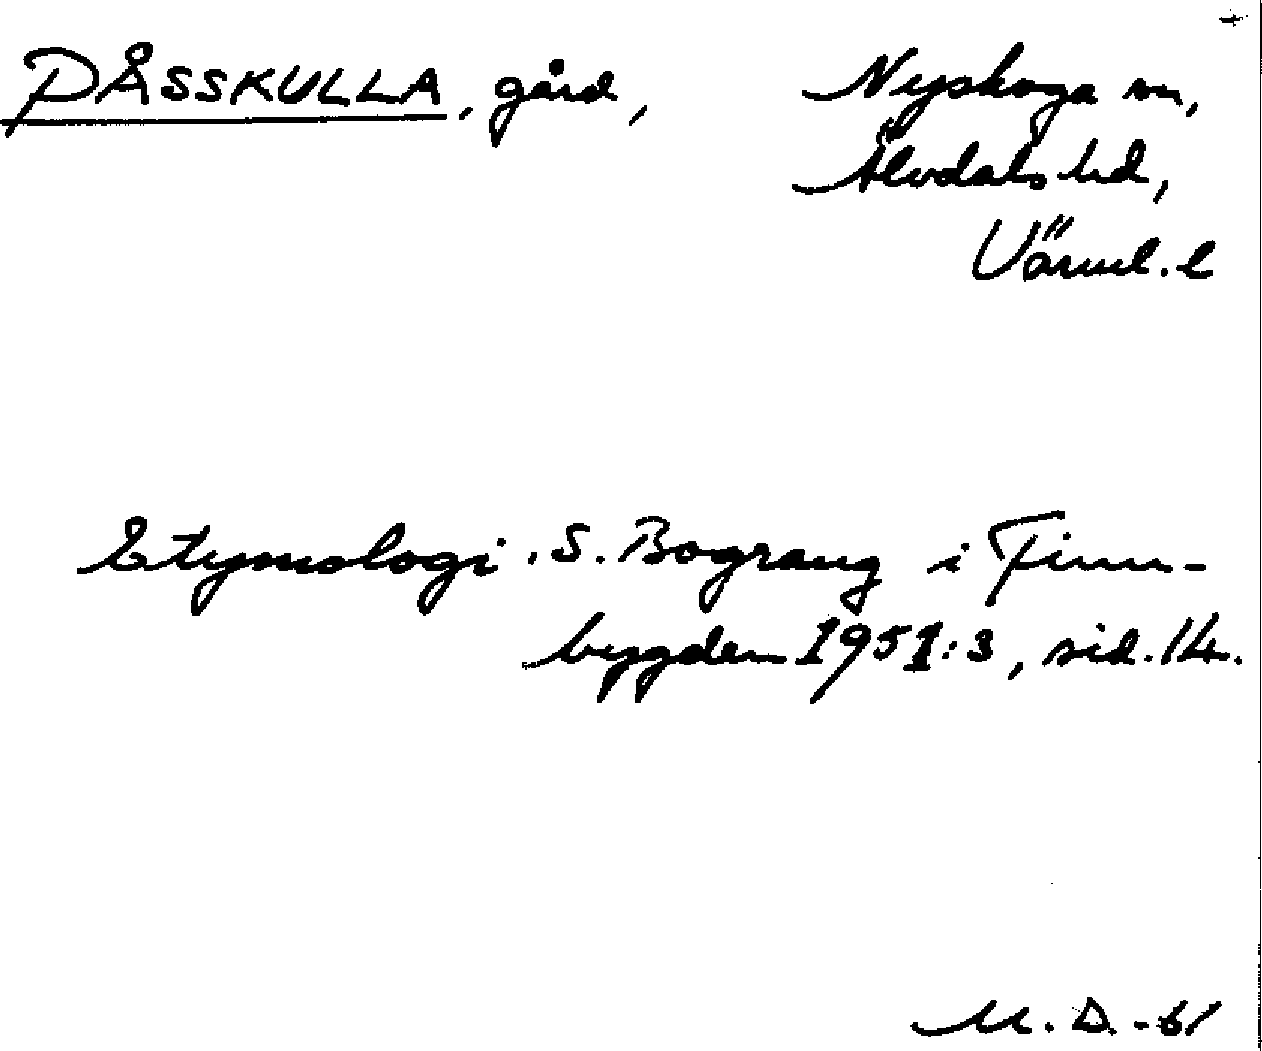 PÅSSKULLA, gård, Nyskoga sn,
Älvdals hd,
Värml. l
Etymologi. S. Bograng i Finn-
bygden 1951:3, sid. 14.
M. D. -61